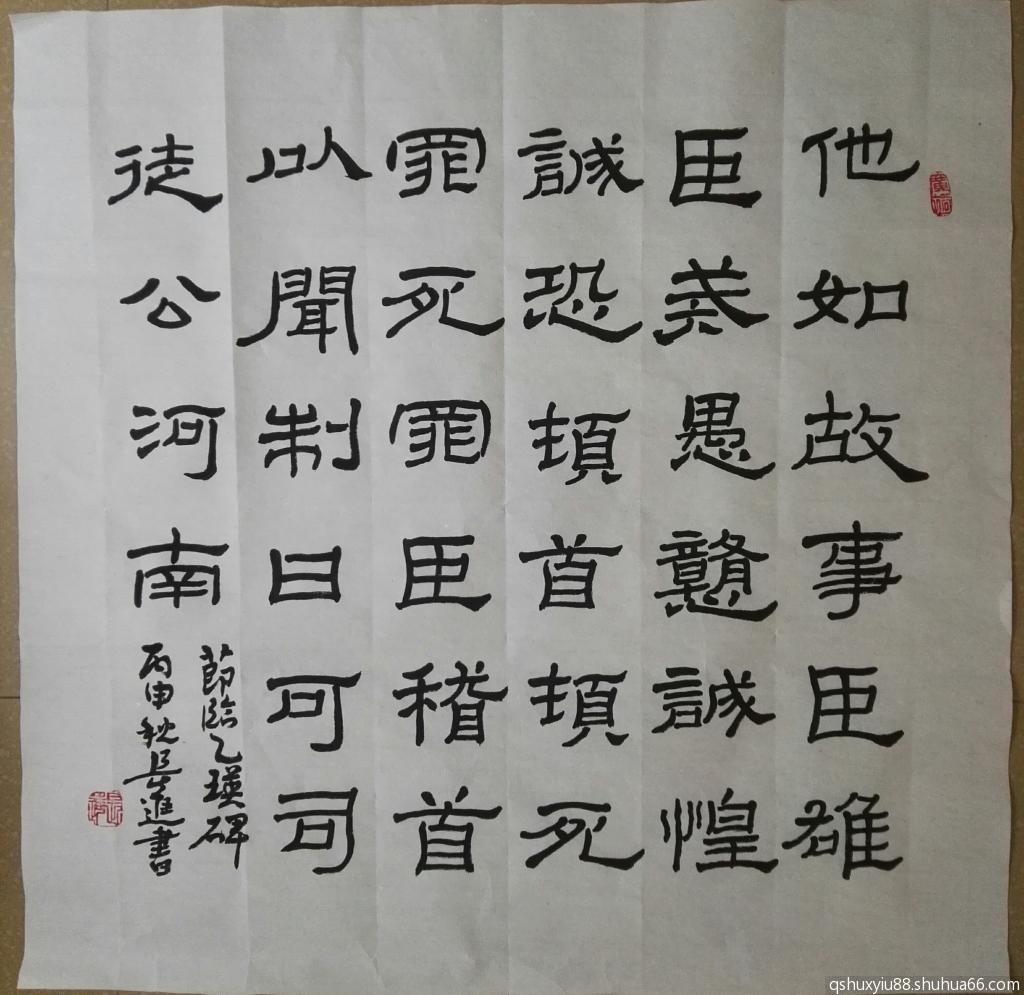 他如故事臣雄
臣戒愚戇誠惶
誠恐頓首頓死
罪死罪臣稽首
以聞制曰可司
徒公河南
節臨乙瑛碑
丙申秋長進書
qshuxyiu88.shuhua66.com